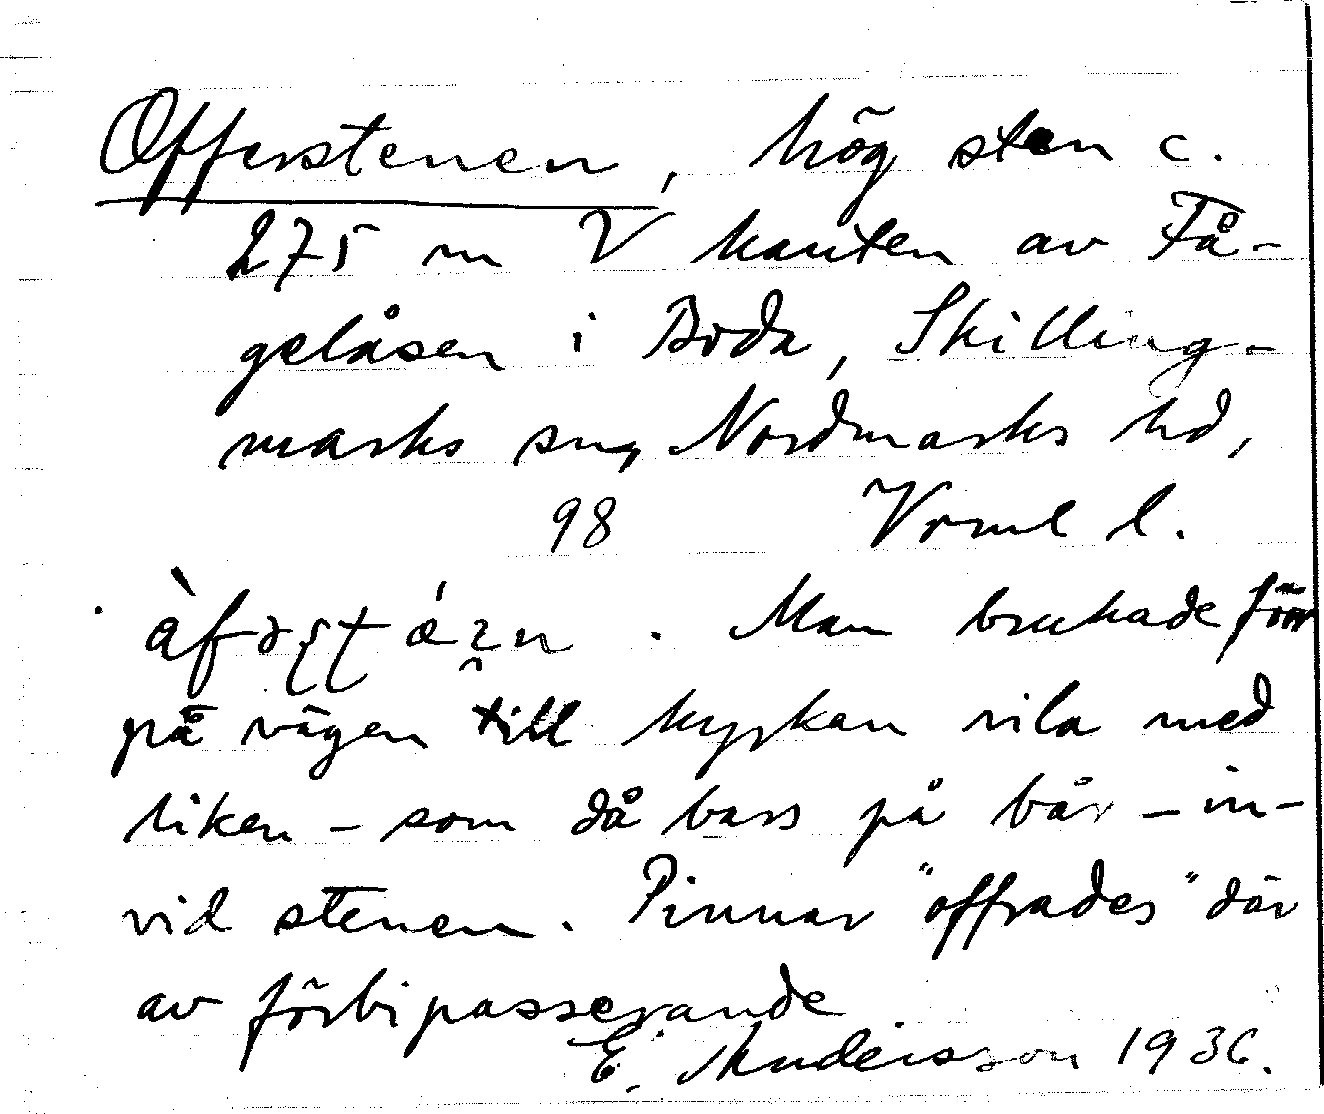 Offerstenen, hög sten c.
275 m V kanten av Få-
gelåsen i Boda, Skilling-
marks sn, Nordmarks hd,
98 Vrml l.
Man brukade förr
på vägen till kyrkan vila med
liken - som då bars på bår - in-
vid stenen. Pinnar "offrades" där
av förbipasserande
E. Andersson 1936.